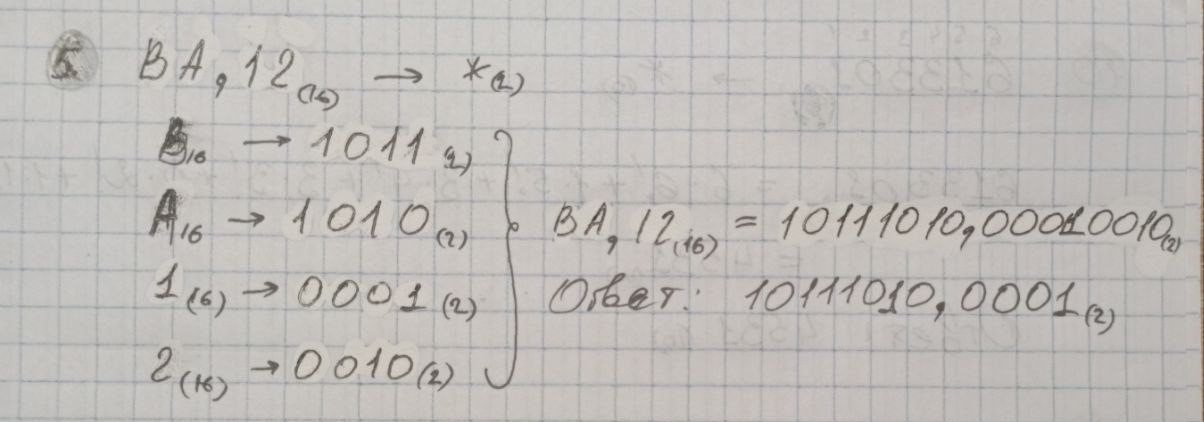 5. BA,12(16) → *(2)
B16 → 1011(2)
A16 → 1010(2)
1(16) → 0001(2)
2(16) → 0010(2)
BA,12(16) = 10111010,00010010(2)
Ответ: 10111010,0001(2)